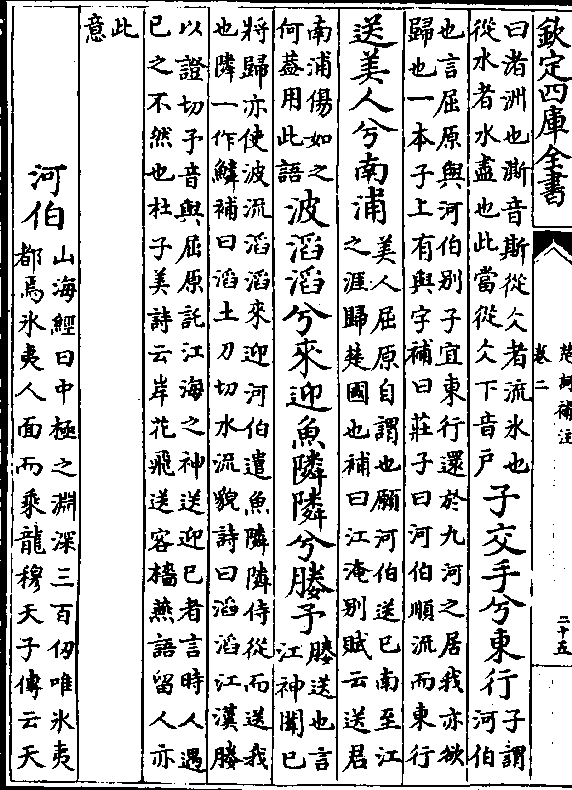 欽定四庫全書
楚詞補注
卷二
二十五
曰渚洲也澌音斯從仌者流氷也
從水者水盡也此當從仌下音戶
子交手兮東行
子謂
河伯
也言屈原與河伯别子宜東行還於九河之居我亦欲
歸也一本子上有與字補曰莊子曰河伯順流而東行
送美人兮南浦
美人屈原自謂也願河伯送已南至江
之涯歸楚國也補曰江淹别賦云送君
南浦傷如之
何蓋用此語
波滔滔兮來迎魚隣隣兮媵予
媵送也言
江神聞已
將歸亦使波流滔滔來迎河伯遣魚隣隣侍從而送我
也隣一作鱗補曰滔土刀切水流貌詩曰滔滔江漢媵
以證切予音與屈原託江海之神送迎已者言時人遇
已之不然也杜子美詩云岸花飛送客檣燕語留人亦
此
意
河伯
山海經曰中極之淵深三百仞唯氷夷
都焉氷夷人面而乘龍穆天子傳云天